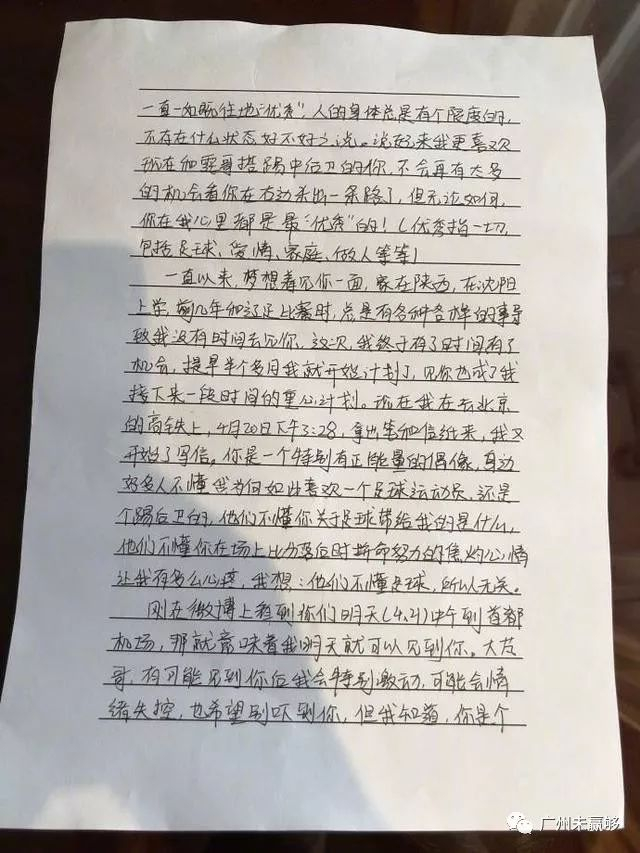 一直一如既往地“优秀”，人的身体总是有个限度的，
不存在什么状态好不好之说。说起来我更喜欢
现在和霏哥搭踢中后卫的你，不会再有太多
的机会看你在右边杀出一条路了，但无论如何，
你在我心里都是最“优秀”的！（优秀指一切，
包括足球、爱情、家庭、做人等等）
一直以来，梦想着见你一面，家在陕西，在沈阳
上学，前几年和辽足比赛时，总是有各种各样的事导
致我没有时间去见你，这次，我终于有了时间有了
机会，提早半个多月我就开始计划了，见你也成了我
接下来一段时间的重心计划。现在我在去北京
的高铁上，4月20日下午3:28，拿出笔和信纸来，我又
开始了写信。你是一个特别有正能量的偶像，身边
好多人不懂我为何如此喜欢一个足球运动员，还是
个踢后卫的，他们不懂你关于足球带给我的是什么，
他们不懂你在场上比分落后时拼命努力的焦灼心情
让我有多么心疼，我想：他们不懂足球，所以无关。
刚在微博上看到你们明天(4.21)中午到首都
机场，那就意味着我明天就可以见到你。大芃
哥，有可能见到你后我会特别激动，可能会情
绪失控，也希望别吓到你，但我知道，你是个
广州未赢够